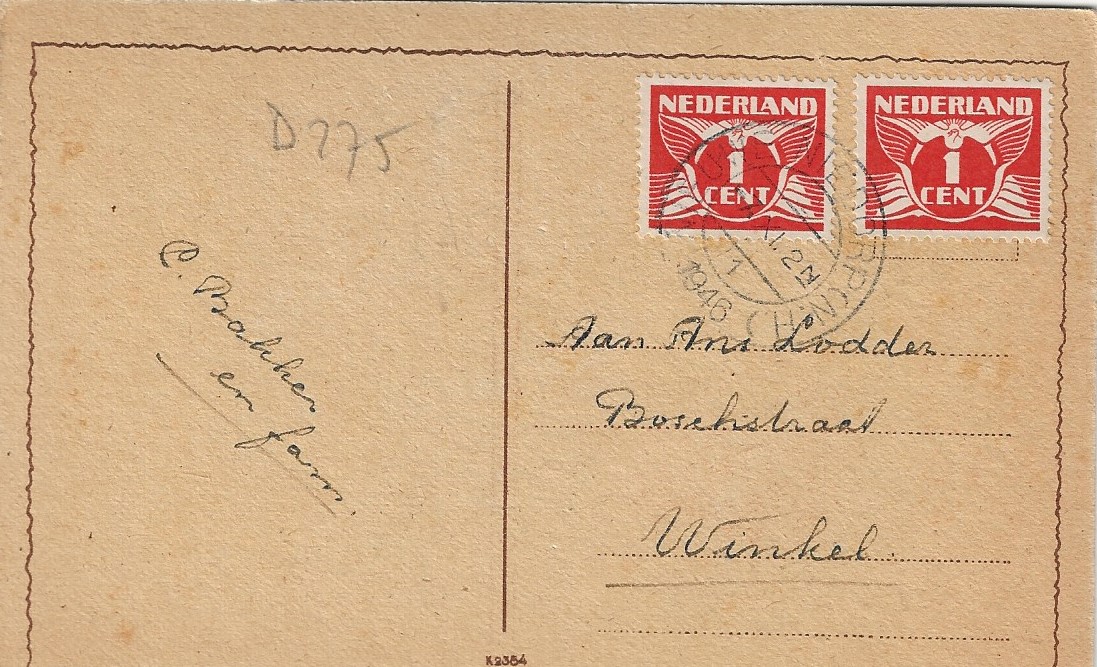 D775
C. Bakker
en fam.
NEDERLAND
1
CENT
NEDERLAND
1
CENT
1946
Aan Ans Lodder
Boschstraat
Winkel.
K2354